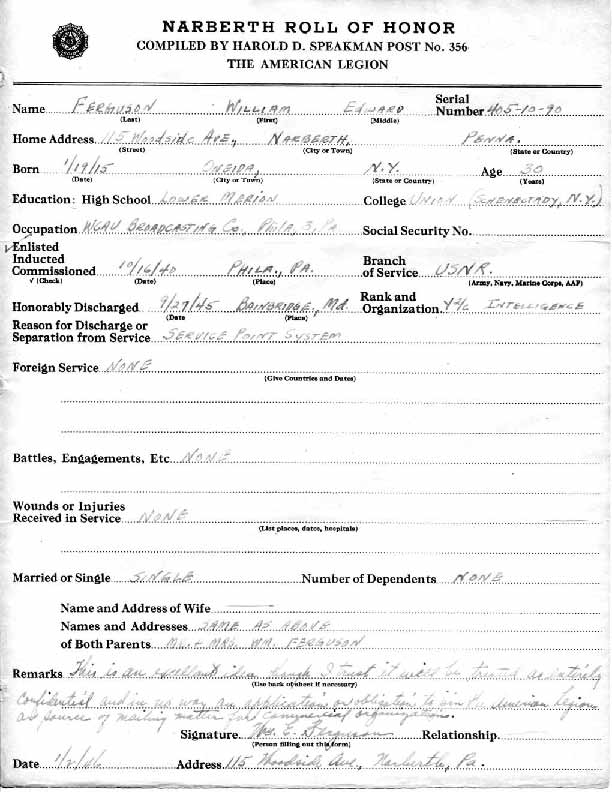 NARBERTH ROLL OF HONOR
COMPILED BY HAROLD D. SPEAKMAN POST No. 356
THE AMERICAN LEGION
Name FERGUSON WILLIAM EDWARD Serial Number 405-10-90
(Last) (First) (Middle)
Home Address 115 Woodside AVE, NARBERTH, PENNA.
(Street) (City or Town) (State or Country)
Born 1/19/15 ONEIDA, N.Y. Age 30
(Date) (City or Town) (State or Country) (Years)
Education: High School LOWER MERION College UNION (SCHENECTADY, N.Y.)
Occupation WCAU BROADCASTING CO., PHILA. 3, PA Social Security No.
✓Enlisted
Inducted Branch
Commissioned 10/16/40 PHILA., PA. of Service USNR.
√ (Check) (Date) (Place) (Army, Navy, Marine Corps, AAF)
Honorably Discharged 9/27/45 BAINBRIDGE, Md. Rank and Organization Y2/c INTELLIGENCE
(Date (Place)
Reason for Discharge or
Separation from Service SERVICE POINT SYSTEM
Foreign Service NONE
(Give Countries and Dates)
Battles, Engagements, Etc NONE
Wounds or Injuries
Received in Service NONE
(List places, dates, hospitals)
Married or Single SINGLE Number of Dependents NONE
Name and Address of Wife
Names and Addresses SAME AS ABOVE
of Both Parents MR. + MRS. WM. FERGUSON
Remarks This is an excellent idea though I trust it will be treated as entirely
(Use back of sheet if necessary)
confidential and in no way an application or obligation to join the American Legion
as source of mailing matter for commercial organizations.
Signature Wm. E. Ferguson Relationship
(Person filling out this form)
Date Address 115 Woodside Ave., Narberth, Pa.